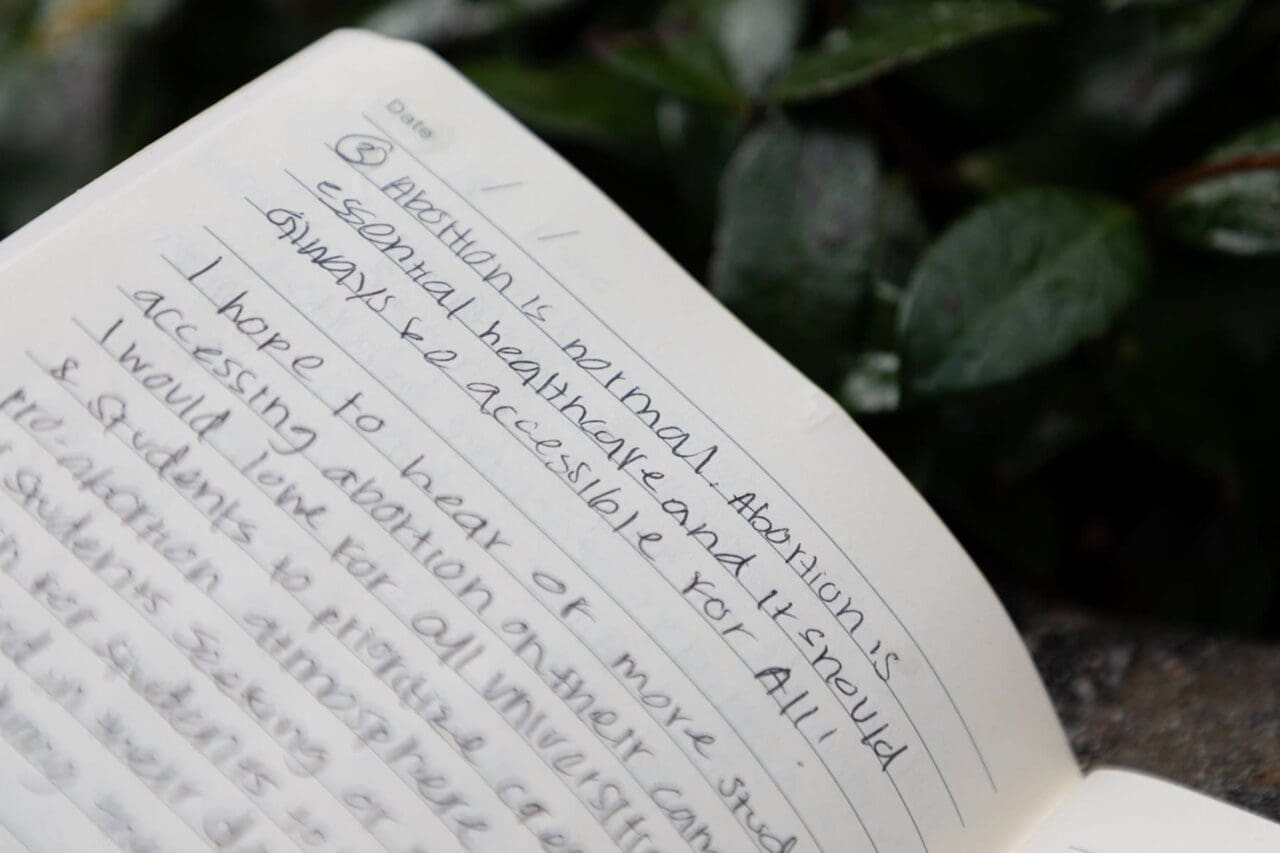 Date
/ /
③ Abortion is normal. Abortion is
essential healthcare and it should
always be accessible for All!
I hope to hear of more stud
accessing abortion on their cam
I would love for all universit
& students to prioritize
pro-abortion atmosphere
students seeking or
for students to